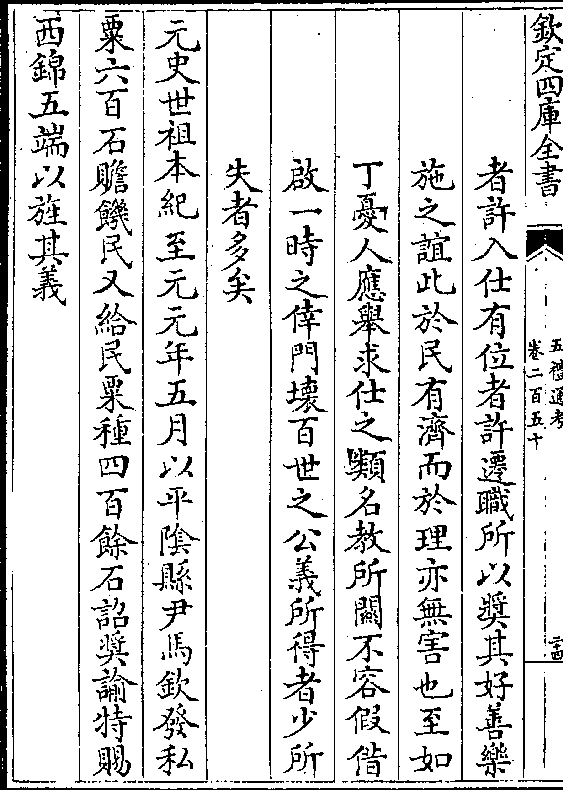 欽定四庫全書
五禮通考
卷二百五十
二十四
者許入仕有位者許遷職所以奬其好善樂
施之誼此於民有濟而於理亦無害也至如
丁憂人應舉求仕之類名教所關不容假借
啟一時之倖門壞百世之公義所得者少所
失者多矣
元史世祖本紀至元元年五月以平隂縣尹馬欽發私
粟六百石贍饑民又給民粟種四百餘石詔奬諭特賜
西錦五端以旌其義